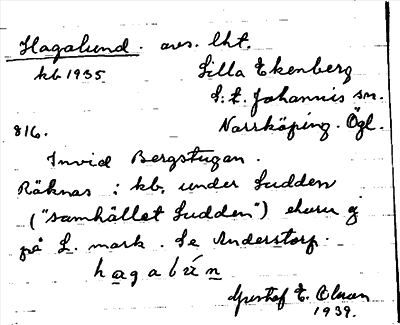 Hagalund. avs. lht.
kb 1935 Lilla Ekenberg
S:t Johannis sn.
816. Norrköping. Ögl.
Invid Bergstugan.
Räknas i kb. under Sudden
("samhället Sudden") ehuru ej
på L. mark. Se Anderstorp.
Gustaf E. Olsson
1939.